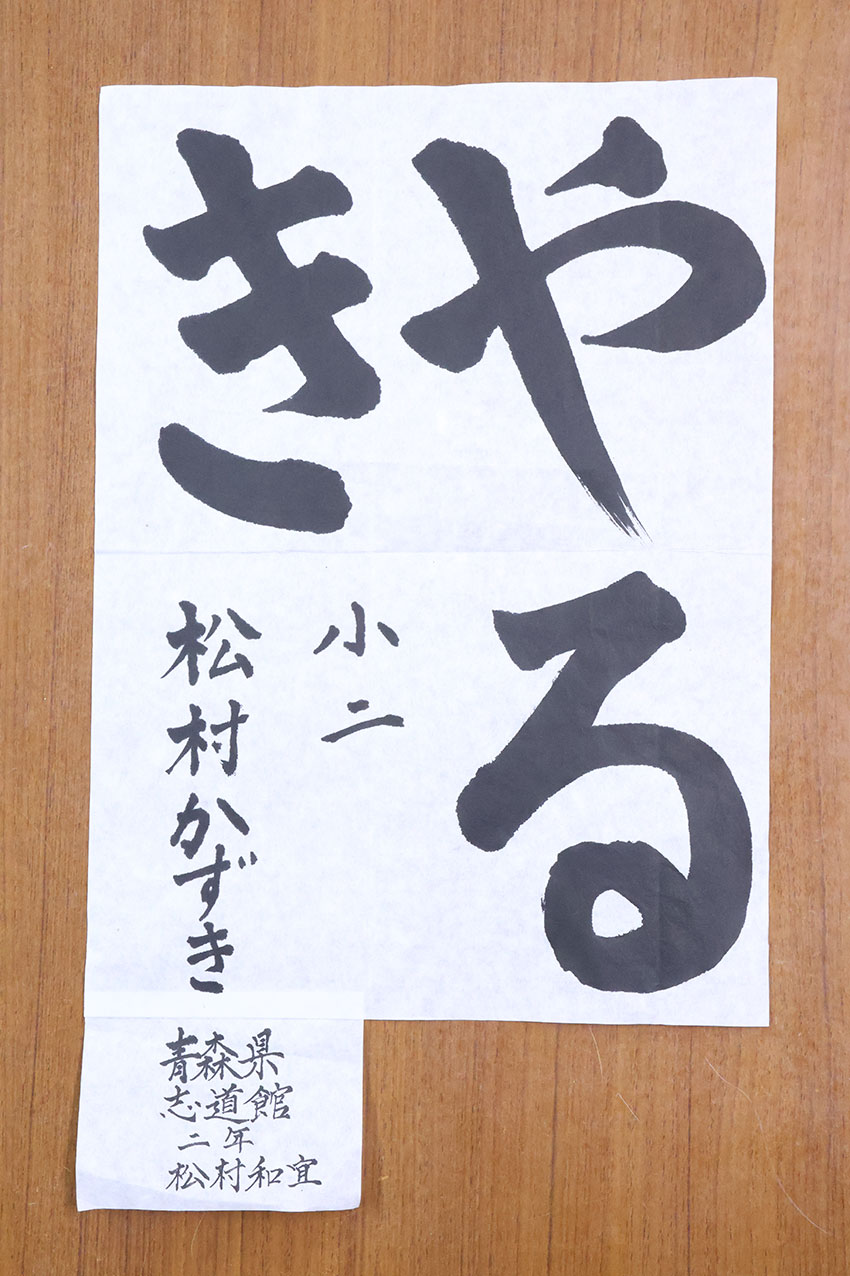 やる
き
小二
松村かずき
青森県
志道館
二年
松村和宜